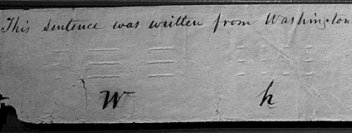 This sentence was written from Washington
W h